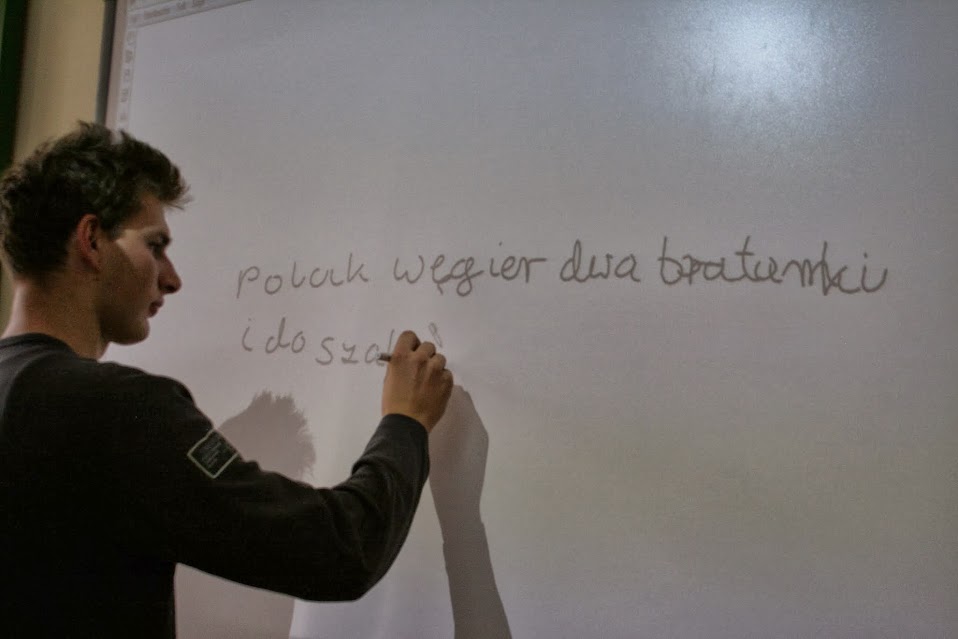 polak węgier dwa bratanki
i do